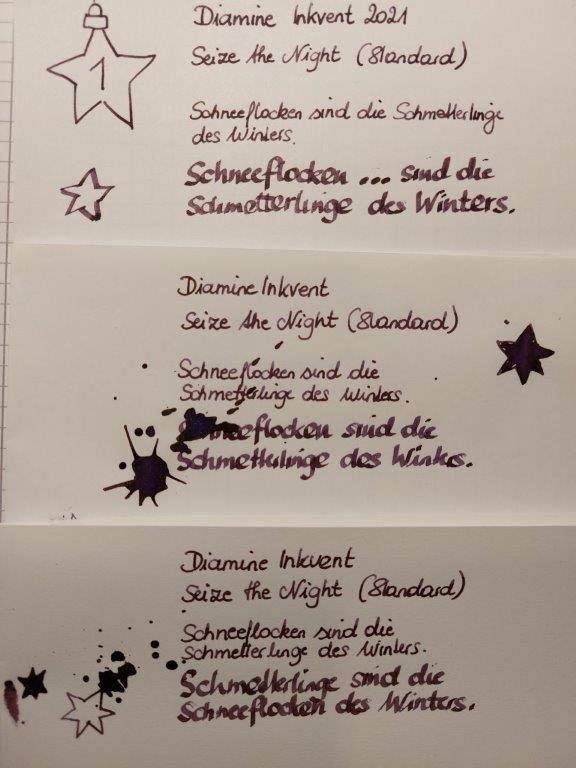 Diamine Inkvent 2021
1
Seize the Night (Standard)
Schneeflocken sind die Schmetterlinge
des Winters.
Schneeflocken ... sind die
Schmetterlinge des Winters.
Diamine Inkvent
Seize the Night (Standard)
Schneeflocken sind die
Schmetterlinge des Winters.
Schneeflocken sind die
Schmetterlinge des Winters.
Diamine Inkvent
Seize the Night (Standard)
Schneeflocken sind die
Schmetterlinge des Winters.
Schmetterlinge sind die
Schneeflocken des Winters.